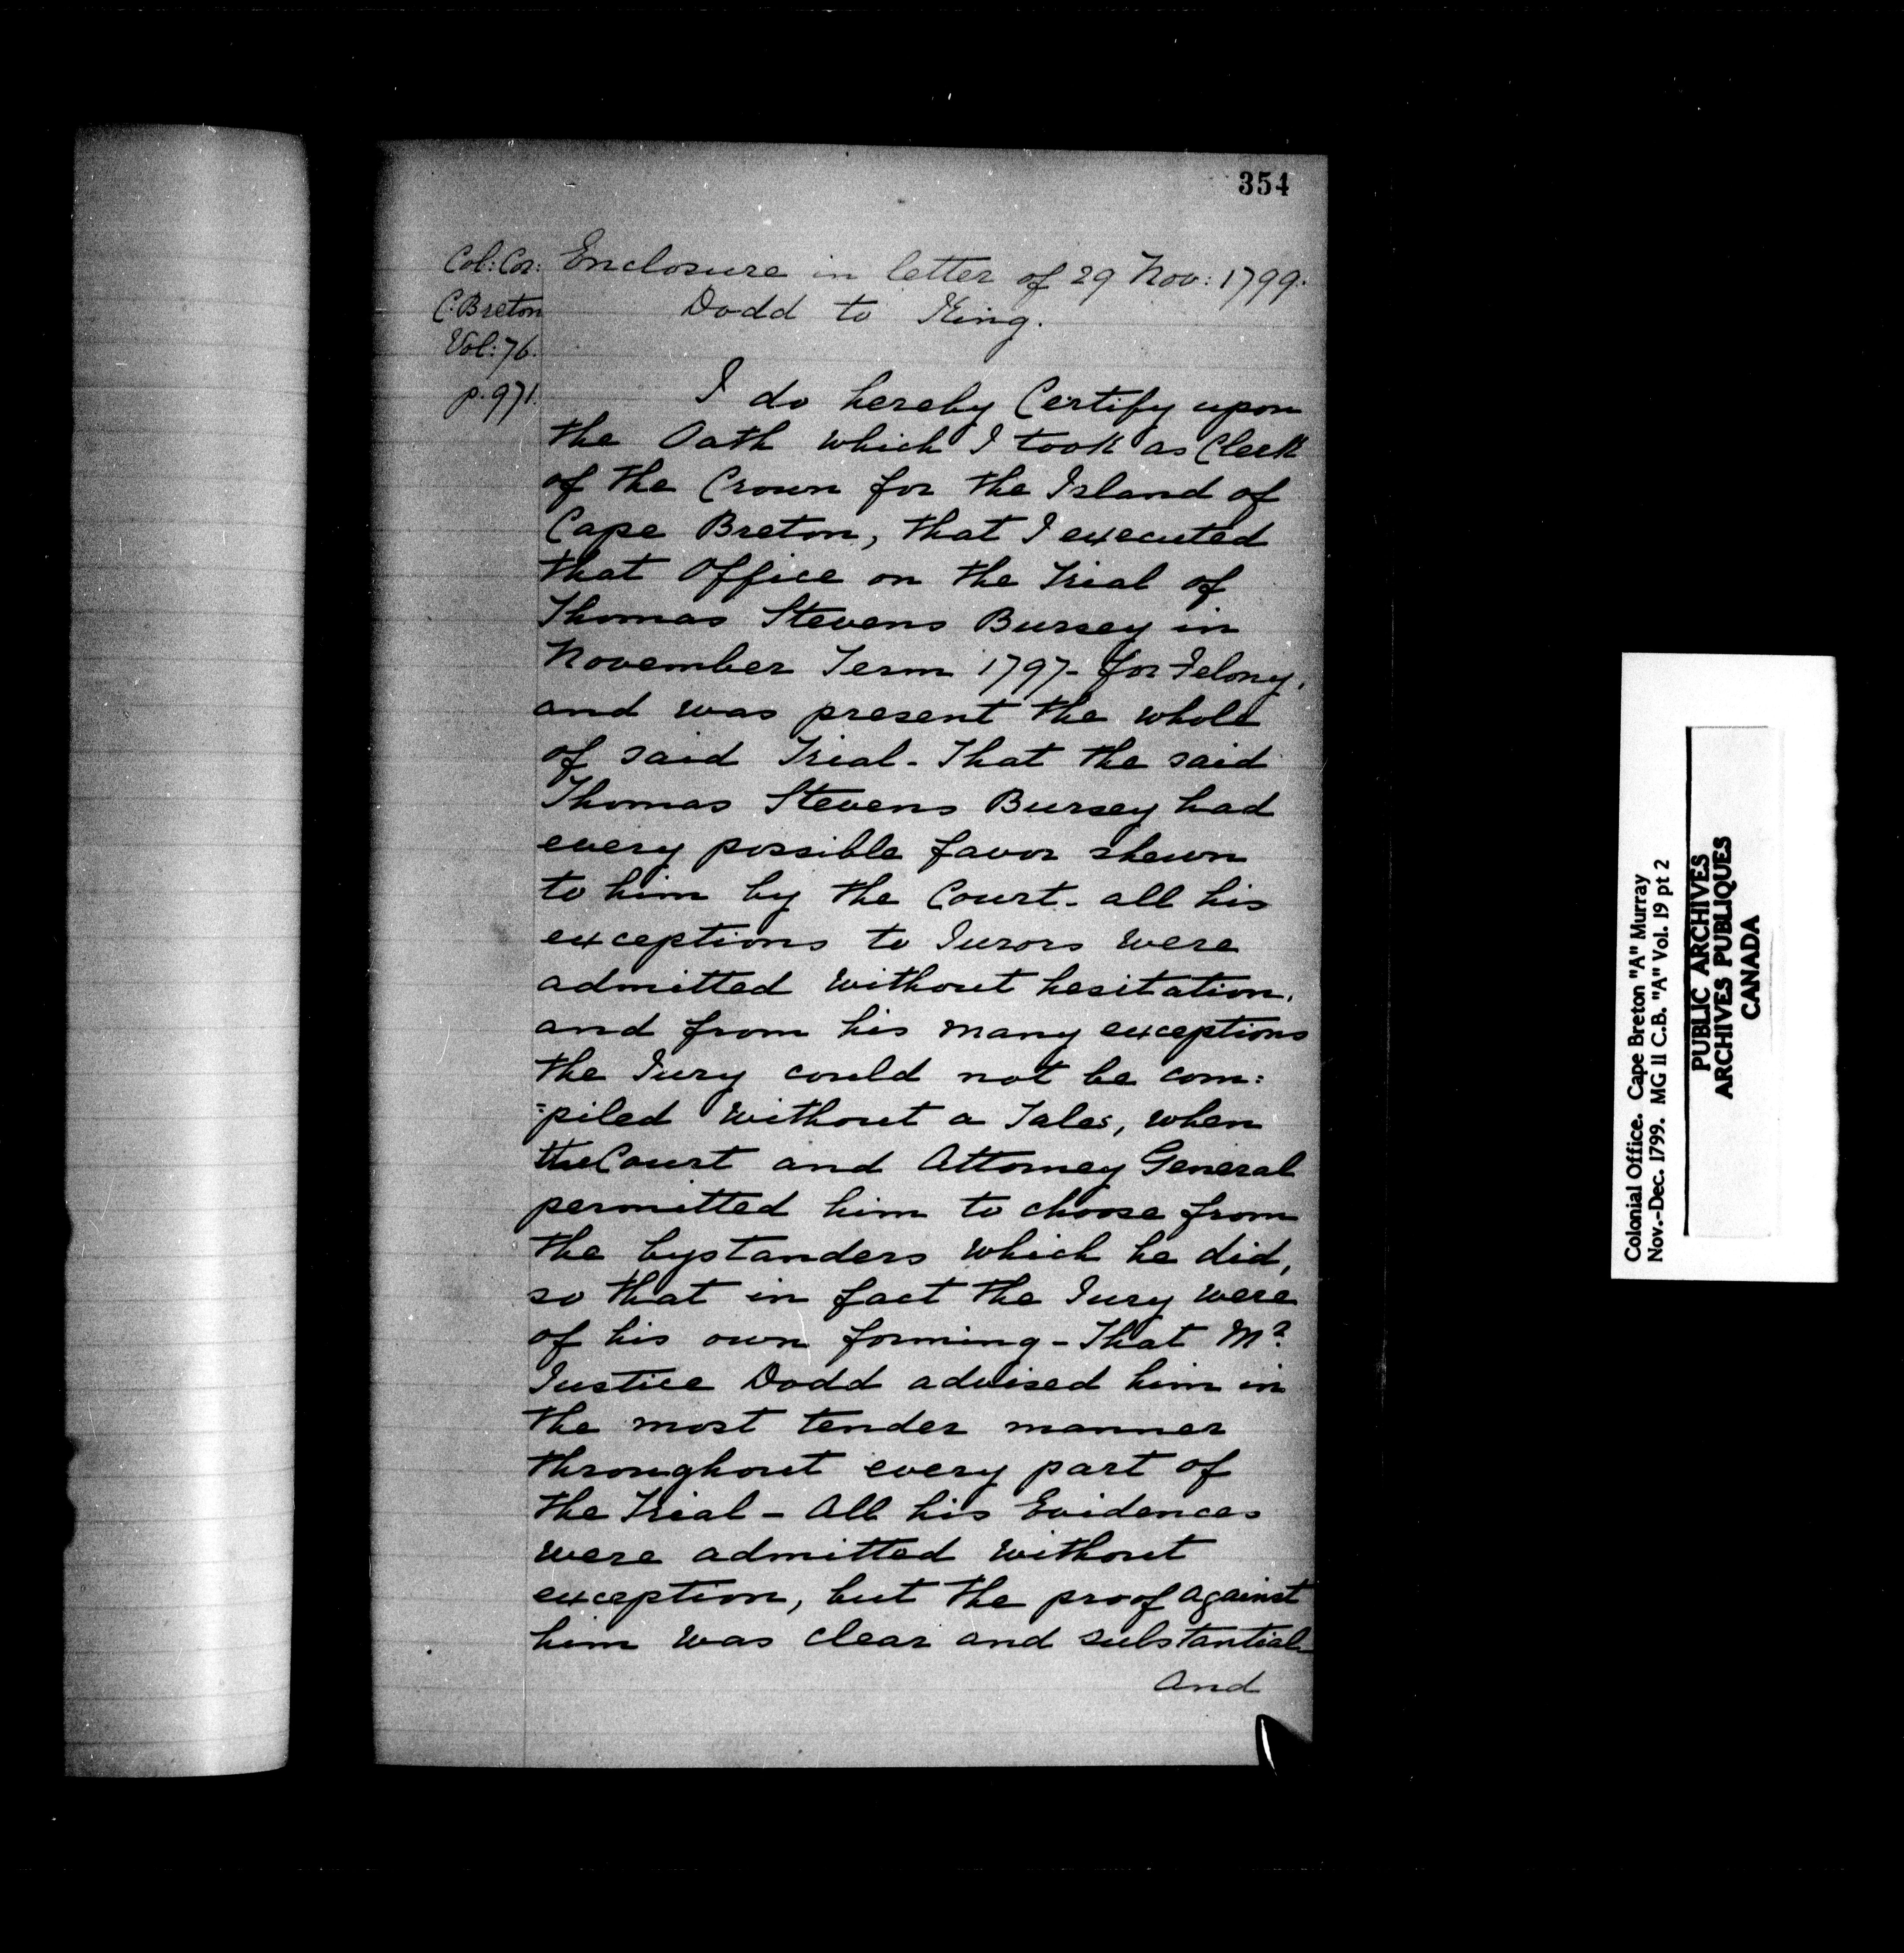 354
Col: Cor: Enclosure in letter of 29 Nov: 1799.
C. Breton Dodd to King.
Vol: 76.
p. 971.
I do hereby Certify upon
the Oath which I took as Clerk
of the Crown for the Island of
Cape Breton, that I executed
that Office on the Trial of
Thomas Stevens Bursey in
November Term 1797- for Felony,
and was present the whole
of said Trial - That the said
Thomas Stevens Bursey had
every possible favor shewn
to him by the Court - all his
exceptions to Jurors were
admitted without hesitation,
and from his many exceptions
the Jury could not be com:
=piled without a Tales, when
the Court and Attorney General
permitted him to choose from
the bystanders which he did,
so that in fact the Jury were
of his own forming - That Mr.
Justice Dodd advised him in
the most tender manner
throughout every part of
the Trial - All his Evidences
were admitted without
exception, but the proof against
him was clear and substantial
And
Colonial Office. Cape Breton "A" Murray
Nov.-Dec. 1799. MG 11 C.B. "A" Vol. 19 pt 2
PUBLIC ARCHIVES
ARCHIVES PUBLIQUES
CANADA